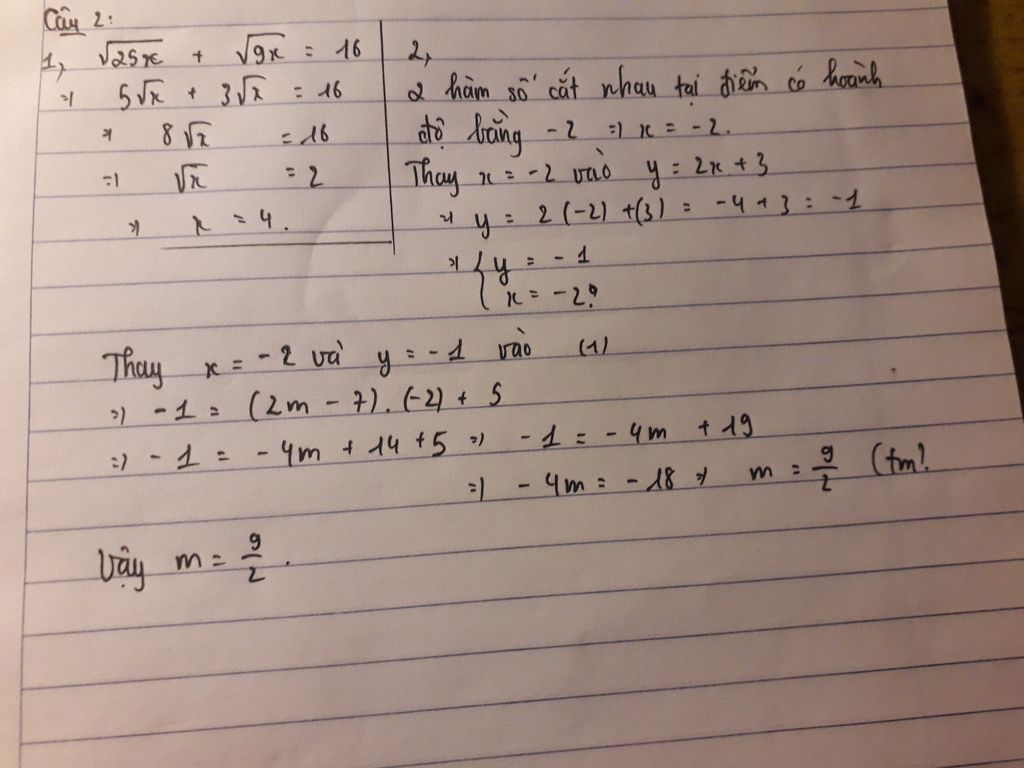 Câu 2:
1, √25x + √9x = 16
=> 5√x + 3√x = 16
=> 8√x = 16
=> √x = 2
=> x = 4.
2,
2 hàm số cắt nhau tại điểm có hoành
độ bằng -2 => x = -2.
Thay x = -2 vào y = 2x + 3
=> y = 2(-2) + (3) = -4 + 3 = -1
=> { y = -1
x = -2.
Thay x = -2 và y = -1 vào (1)
=> -1 = (2m - 7).(-2) + 5
=> -1 = -4m + 14 + 5 => -1 = -4m + 19
=> -4m = -18 => m = 9/2 (tm)
Vậy m = 9/2.